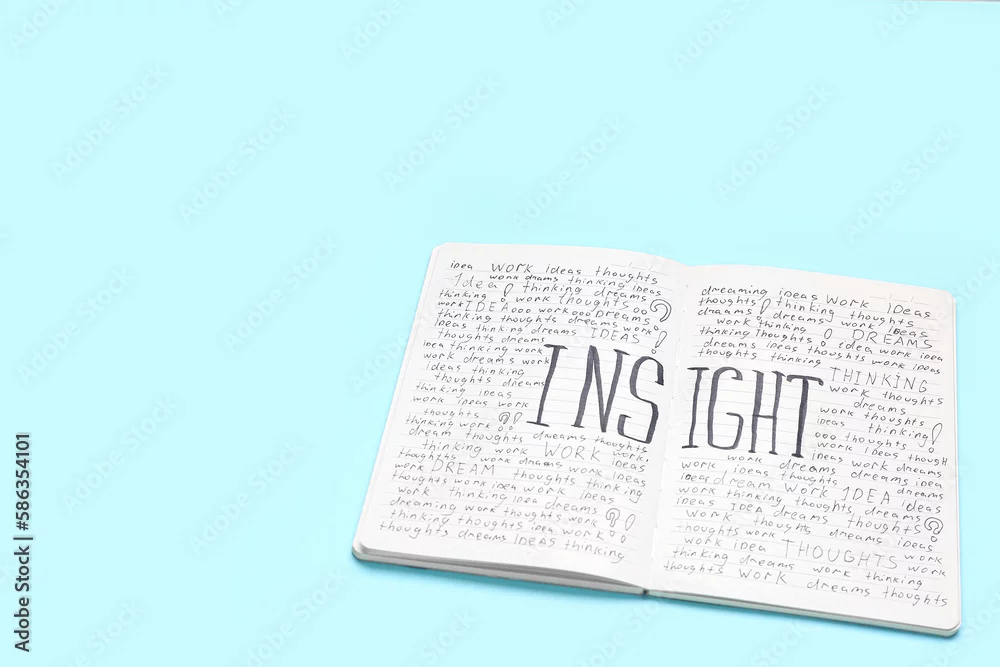 idea work ideas thoughts
work drams thinking ideas
Idea! thinking dreams
thinking ! work thoughts
work IDEA work DREAMS
thinking thoughts dreams work
Ideas thinking dreams IDEAS !
thoughts dreams
idea thinking work
work dreams work
Ideas thinking
thoughts dreams
thinking ideas
work ideas work
thoughts ?!
thinking work
dream thoughts dreams thoughts
thinking work WORK ideas
thoughts work dreams work ideas
work DREAM thoughts thinking
thoughts work idea work ideas
work thinking idea dreams
dreaming work thoughts work ?!
thinking thoughts idea work
thoughts dreams IDEAS thinking
INSIGHT
dreaming ideas WORK IDeas
thoughts ! thinking thoughts
dreams ! dreams work ideas
work thinking ! DREAMS
thinking Thoughts ! idea work idea
dreams ideas thoughts work ideas
thoughts thinking THINKING
work thoughts
dreams
work thoughts
ideas thinking!
thoughts dreams
work Ideas
ideas work dreams
work dreams dreams idea
work ideas thoughts dreams
ideas dream WORK IDEA ideas
work thinking thoughts dreams
ideas IDEA dreams thoughts ?
work thoughts dreams ideas
thoughts work THOUGHTS work
work idea work
thinking dreams work thinking
thoughts WORK dreams thoughts
Adobe Stock | #586354101